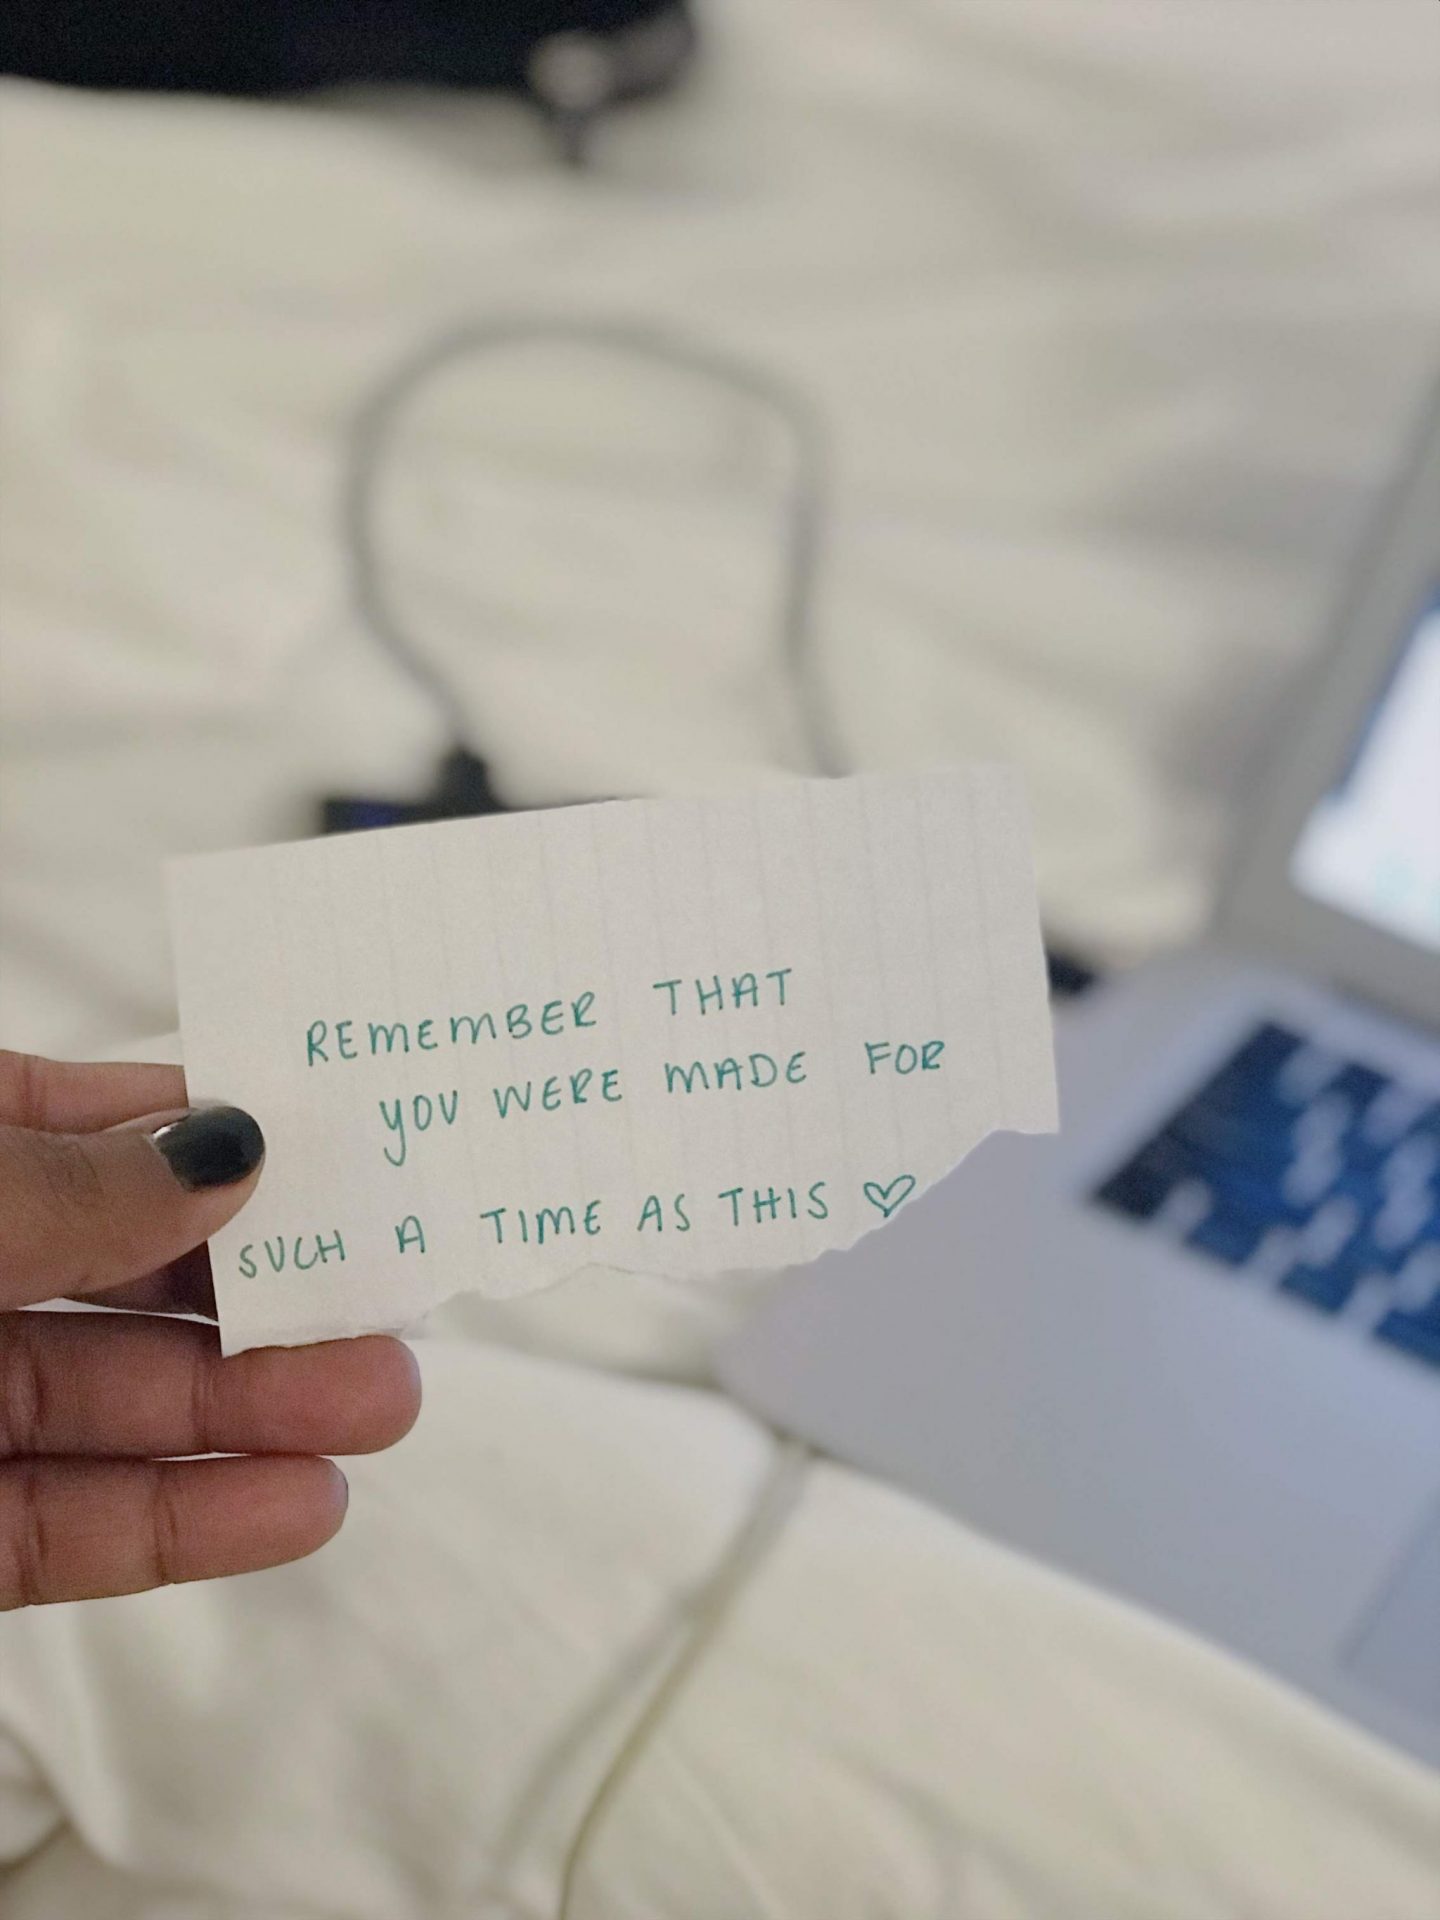 REMEMBER THAT
YOU WERE MADE FOR
SUCH A TIME AS THIS ♡